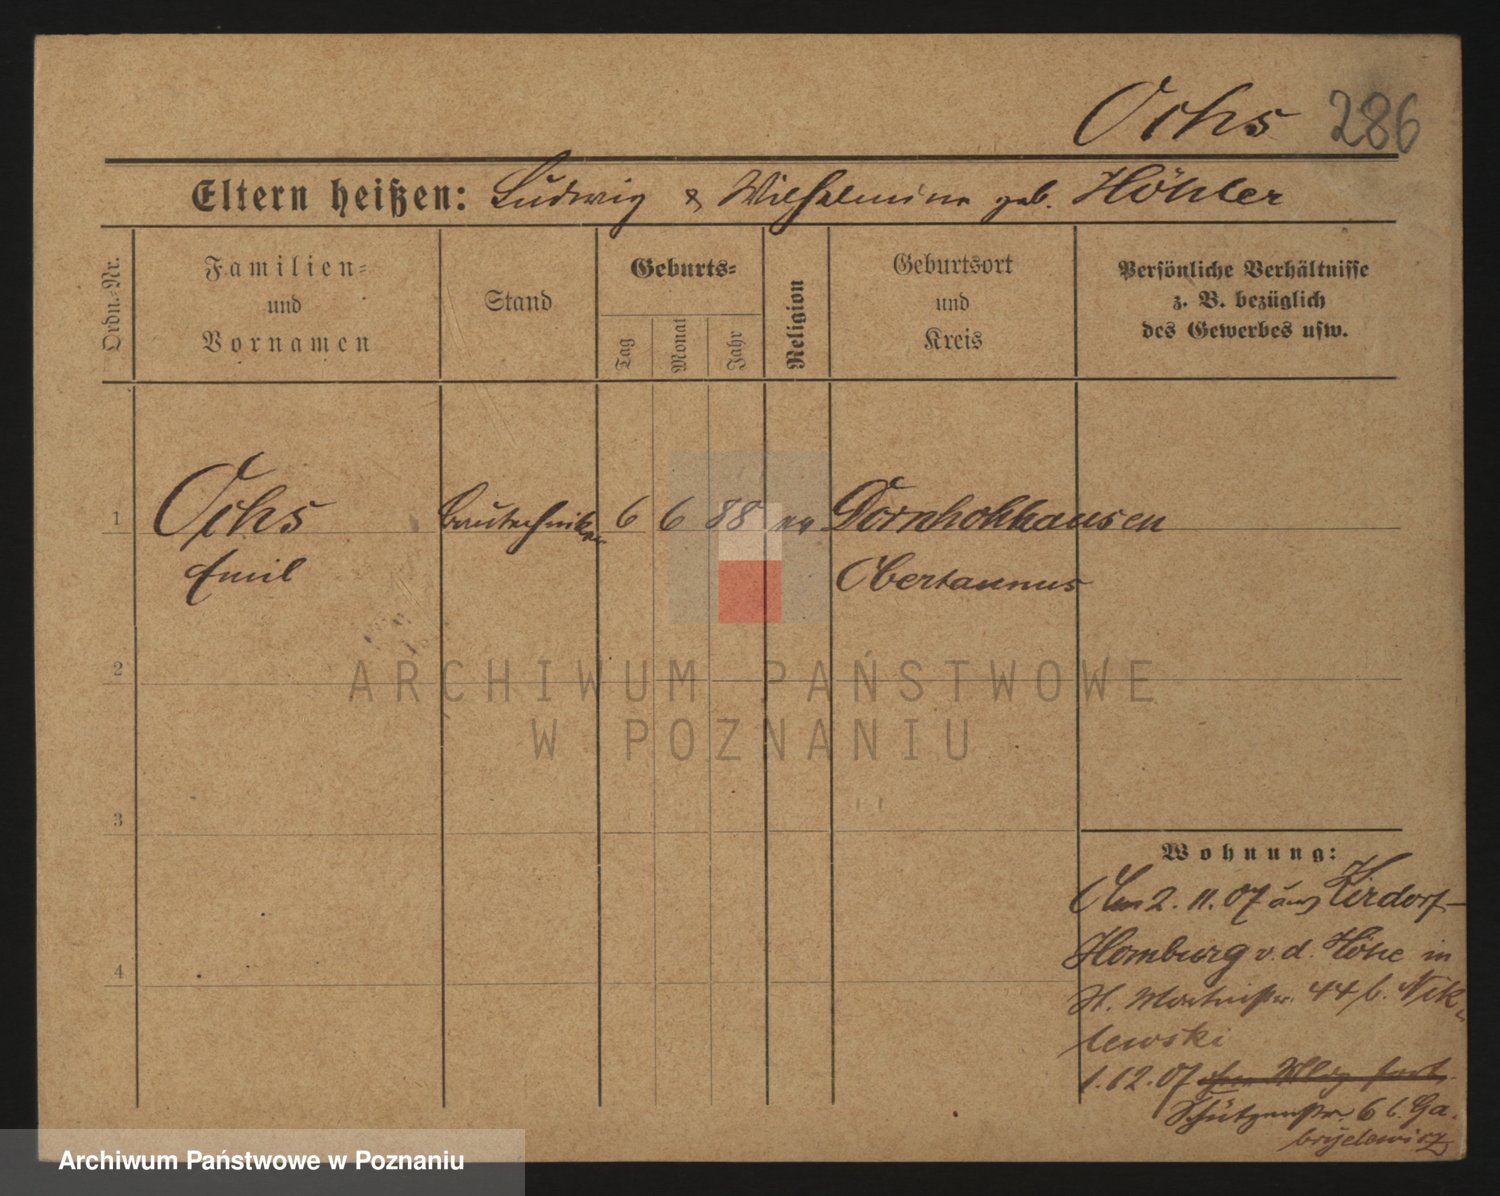 Ochs 286
Eltern heißen: Ludwig & Wilhelmine geb. Höhler
Ordn.-Nr.
Familien-
und
Vornamen
Stand
Geburts-
Tag
Monat
Jahr
Religion
Geburtsort
und
Kreis
Persönliche Verhältnisse
z. B. bezüglich
des Gewerbes usw.
1 Ochs Bautechniker 6 6 88 ev Dornholzhausen
Emil Obertaunus
2
3
4
Wohnung:
Am 2. 11. 07 aus Kirdorf-
Homburg v. d. Höhe in
St. Martinstr. 44 b. Nik-
lewski
1. 12. 07 fort
Schützenstr. 6 b. Ga-
bryelewicz
ARCHIWUM PAŃSTWOWE
W POZNANIU
Archiwum Państwowe w Poznaniu